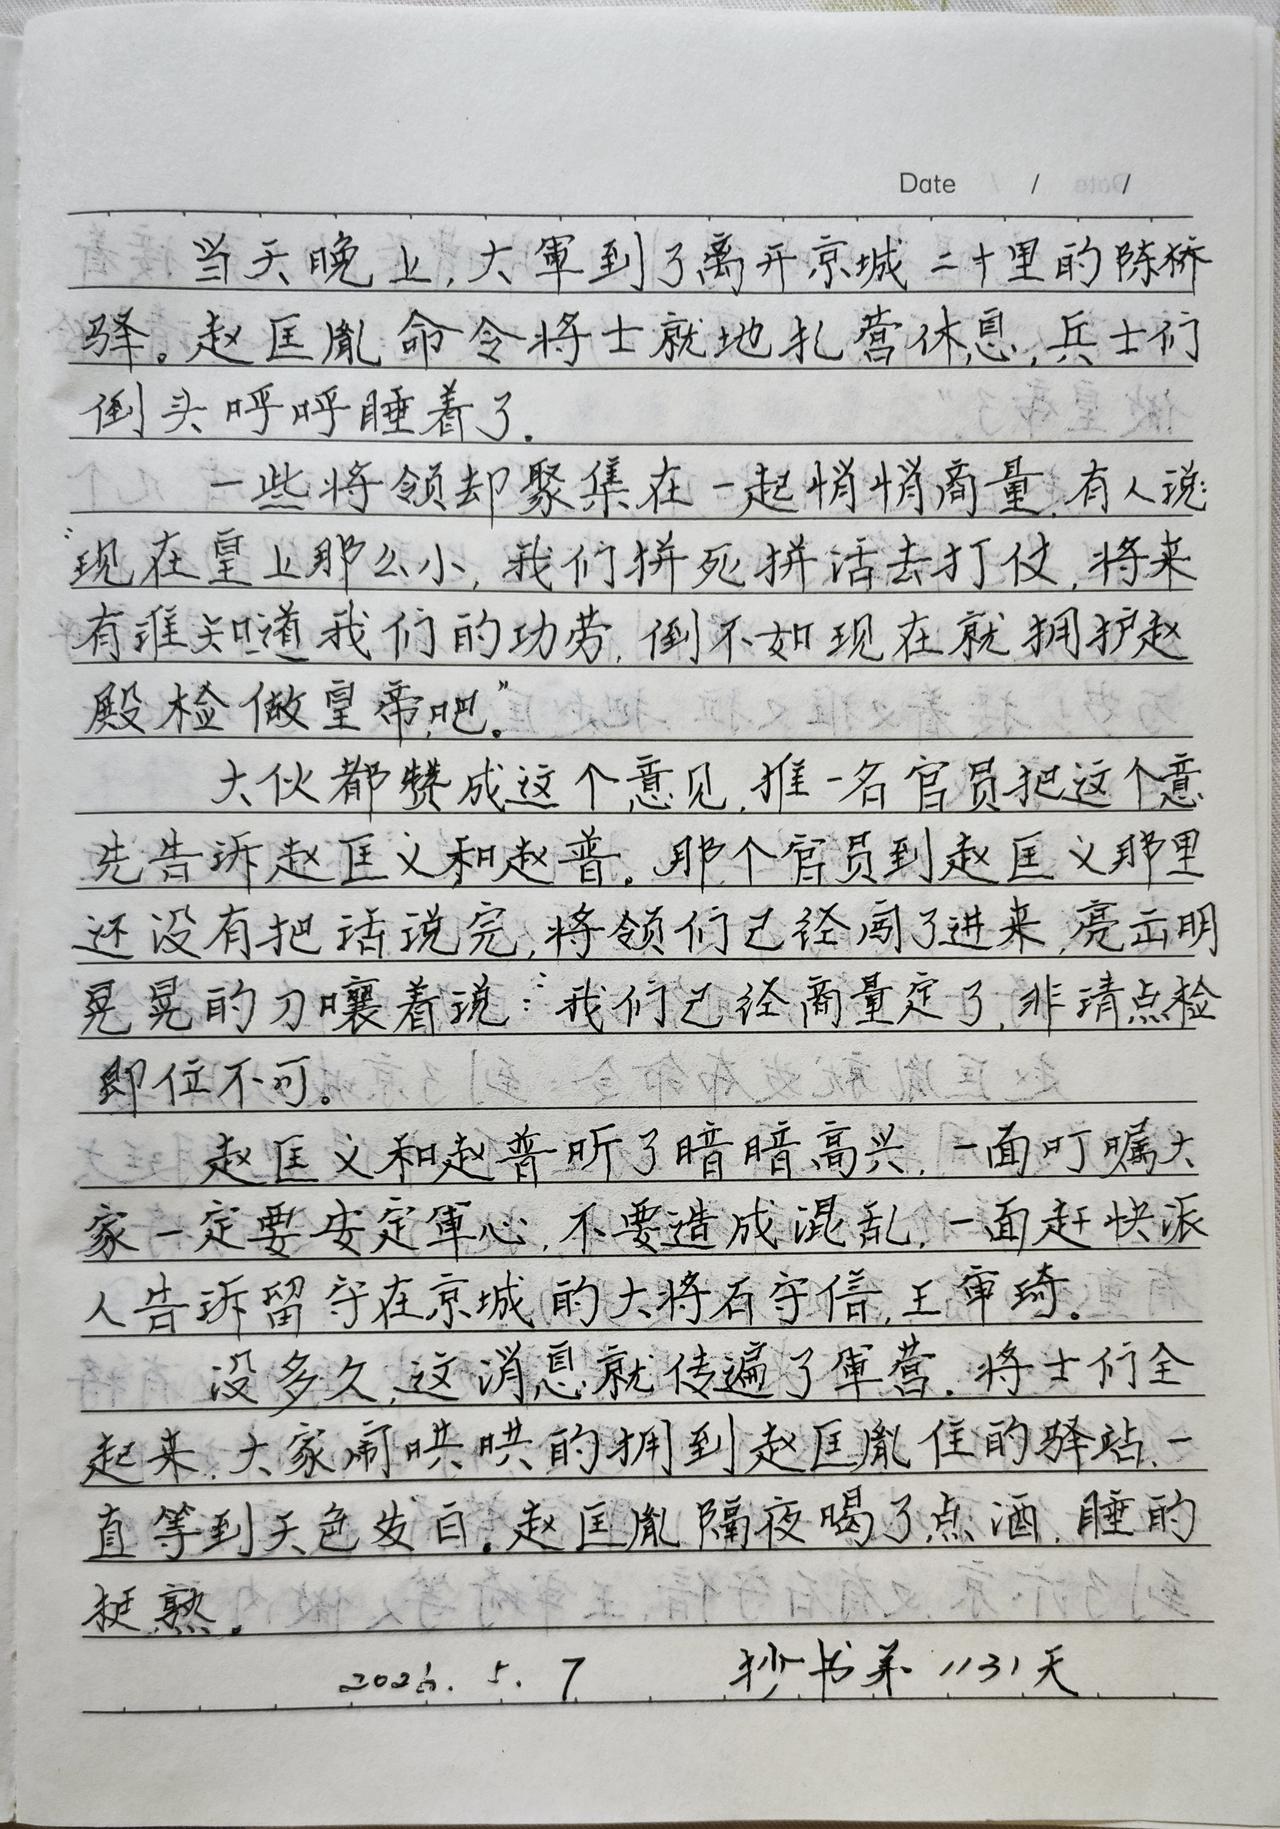 Date / / /
当天晚上,大軍到了离开京城二十里的陈桥
驿。赵匡胤命令将士就地扎营休息,兵士们
倒头呼呼睡着了.
一些将领却聚集在一起悄悄商量,有人说:
“现在皇上那么小,我们拼死拼活去打仗,将来
有谁知道我们的功劳,倒不如现在就拥护赵
殿检做皇帝吧。”
大伙都赞成这个意见,推一名官员把这个意
先告诉赵匡义和赵普。那个官员到赵匡义那里
还没有把话说完,将领们已经闯了进来,亮出明
晃晃的刀嚷着说:“我们已经商量定了,非请点检
即位不可。
赵匡义和赵普听了暗暗高兴,一面叮嘱大
家一定要安定軍心,不要造成混乱,一面赶快派
人告诉留守在京城的大将石守信,王审琦。
没多久,这消息就传遍了軍营.将士们全
起来,大家闹哄哄的拥到赵匡胤住的驿站,一
直等到天色发白。赵匡胤隔夜喝了点酒,睡的
挺熟。
5.7 抄书第1131天